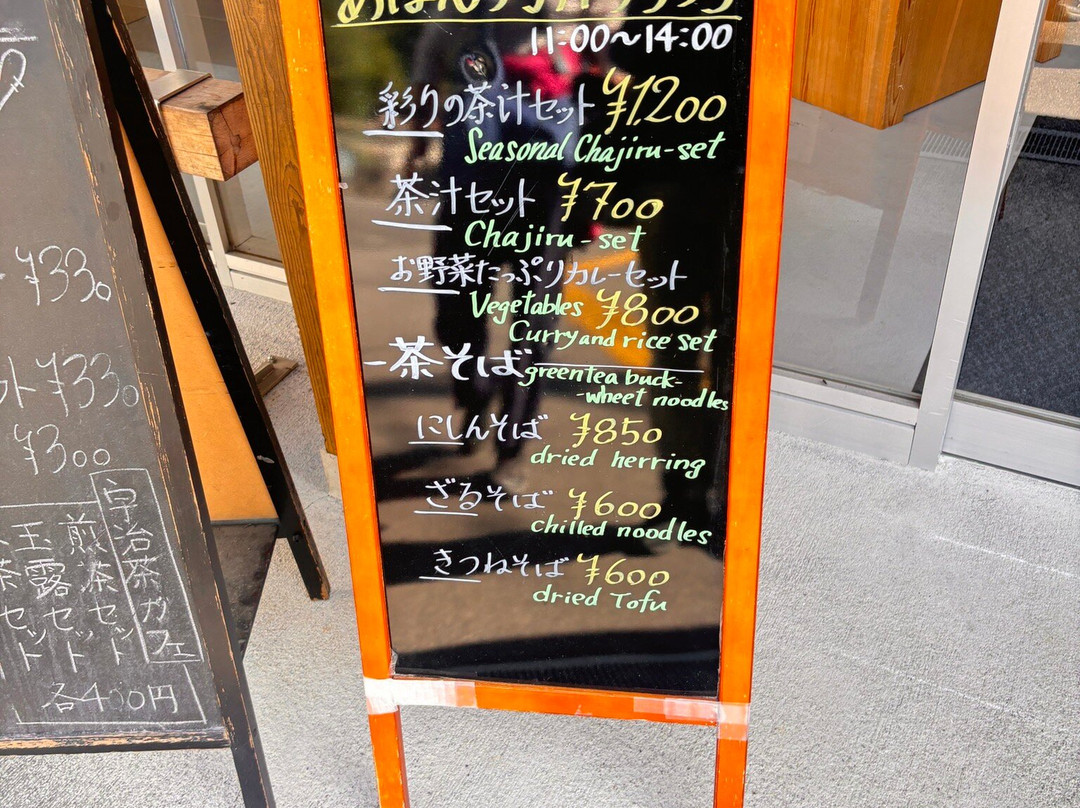 11:00～14:00
彩りの茶汁セット ¥1200
Seasonal Chajiru-set
茶汁セット ¥700
Chajiru-set
お野菜たっぷりカレーセット
Vegetables ¥800
Curry and rice set
茶そば
greentea buck-
-wheet noodles
にしんそば ¥850
dried herring
ざるそば ¥600
chilled noodles
きつねそば ¥600
dried Tofu
¥330
ット ¥330
¥300
宇治茶カフェ
煎茶セット
玉露セット
茶セット
各400円